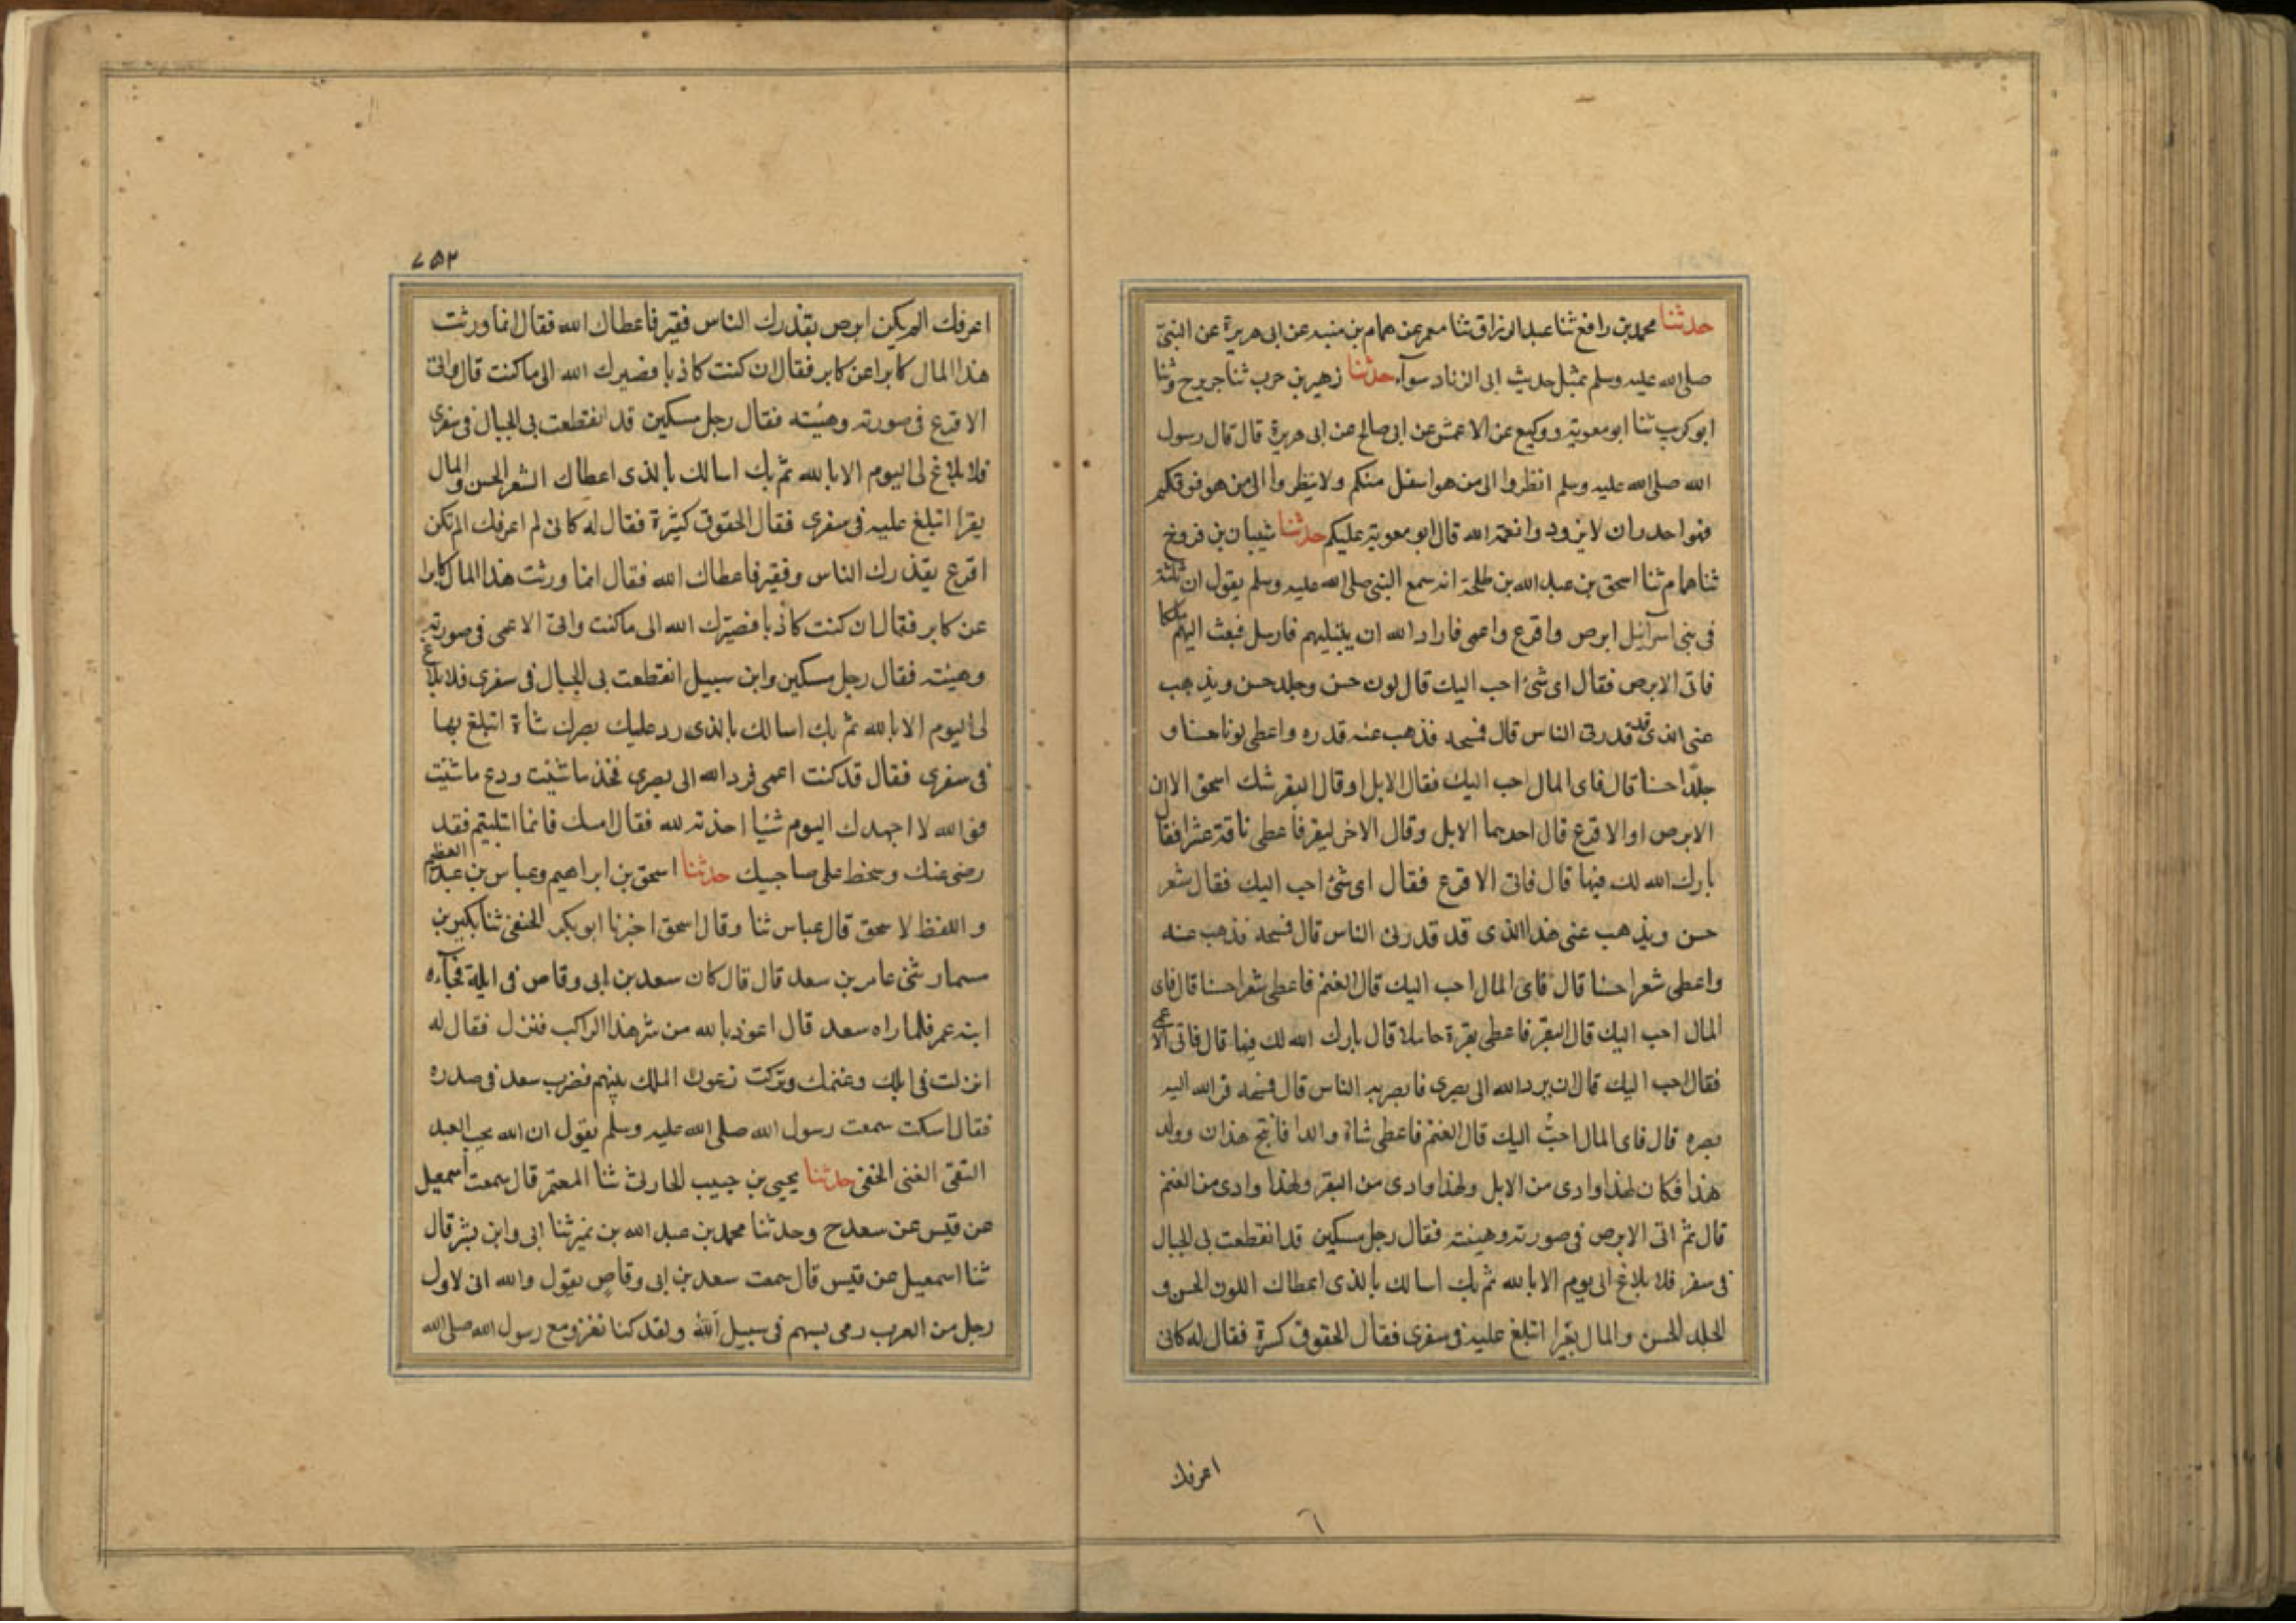 حدثنا محمد بن رافع ثنا عبد الرزاق ثنا معمر عن همام بن منبه عن ابى هريرة عن النبى
صلى الله عليه وسلم بمثل حديث ابى الزناد سوآء حدثنا زهير بن حرب ثنا جرير ح وثنا
ابو كريب ثنا ابو معوية ووكيع عن الاعمش عن ابى صالح عن ابى هريرة قال قال رسول
الله صلى الله عليه وسلم انظروا الى من هو اسفل منكم ولا تنظروا الى من هو فوقكم
فهو احدر ان لا يزودوا نعمة الله قال ابو معوية عليكم حدثنا شيبان بن فروخ
ثنا همام ثنا اسحق بن عبد الله بن طلحة انه سمع النبى صلى الله عليه وسلم يقول ان ثلثة
فى بنى اسرآئيل ابرص واقرع واعمى فاراد الله ان يبتليهم فارسل فبعث اليهم ملكا
فاتى الابرص فقال اى شئ احب اليك قال لون حسن وجلد حسن ويذهب
عنى الذى قد قدرنى الناس قال فمسحه فذهب عنه قدره واعطى لونا حسنا و
جلدا حسنا قال فاى المال احب اليك فقال الابل او قال البقر شك اسحق الا ان
الابرص او الاقرع قال احدهما الابل وقال الاخر لبقر فاعطى ناقة عشرا فقال
بارك الله لك فيها قال فاتى الاقرع فقال اى شئ احب اليك فقال شعر
حسن ويذهب عنى هذا الذى قد قدرنى الناس قال فمسحه فذهب عنه
واعطى شعرا حسنا قال فاى المال احب اليك قال الغنم فاعطى شعرا حسنا قال فاى
المال احب اليك قال البقر فاعطى بقرة حاملا قال بارك الله لك فيها قال فاتى الاعمى
فقال احب اليك قال ان يرد الله الى بصرى فابصر به الناس قال فمسحه فرد الله اليه
بصره قال فاى المال احب اليك قال الغنم فاعطى شاة والدا فانتج هذان وولد
هذا فكان لهذا وادى من الابل ولهذا وادى من البقر ولهذا وادى من الغنم
قال ثم اتى الابرص فى صورته وهيئته فقال رجل مسكين قد انقطعت بى الجبال
فى سفر فلا بلاغ لى يوم الا بالله ثم بك اسالك بالذى اعطاك اللون الحسن و
الجلد الحسن والمال بقرا اتبلغ عليه فى سفرى فقال الحقوق كسرة فقال له كانى
اعرفك
٦
٧٥٣
اعرفك الم يكن ابرص يقذرك الناس فقير فاعطاك الله فقال انما ورثت
هذا المال كابرا عن كابر فقال ان كنت كاذبا فصيرك الله الى ما كنت قال واتى
الاقرع فى صورته وهيئته فقال رجل مسكين قد انقطعت بى الجبال فى سفرى
فلا بلاغ لى اليوم الا بالله ثم بك اسالك بالذى اعطاك الشعر الحسن والمال
بقرا اتبلغ عليه فى سفرى فقال الحقوق كثيرة فقال له كانى لم اعرفك الم تكن
اقرع يقذرك الناس وفقير فاعطاك الله فقال انما ورثت هذا المال كابرا
عن كابر فقال ان كنت كاذبا فصيرك الله الى ما كنت واتى الاعمى فى صورته
وهيئته فقال رجل مسكين وابن سبيل انقطعت بى الجبال فى سفرى فلا بلاغ
لى اليوم الا بالله ثم بك اسالك بالذى رد عليك بصرك شاة اتبلغ بها
فى سفرى فقال قد كنت اعمى فرد الله الى بصرى فخذ ما شئت ودع ما شئت
فوالله لا اجهدك اليوم شيئا اخذته لله فقال امسك فانما ابتليتم فقد
رضى عنك وسخط على صاحبيك حدثنا اسحق بن ابراهيم وعباس بن عبد العظيم
واللفظ لاسحق قال عباس ثنا وقال اسحق اخبرنا ابو بكر الحنفى ثنا بكير بن
مسمار ثنى عامر بن سعد قال قال كان سعد بن ابى وقاص فى ابله فجآءه
ابنه عمر فلما راه سعد قال اعوذ بالله من شر هذا الراكب فنزل فقال له
انزلت فى ابلك وغنمك وتركت زعون الملك بينهم فضرب سعد فى صدره
فقال اسكت سمعت رسول الله صلى الله عليه وسلم يقول ان الله يحب العبد
التقى الغنى الخفى حدثنا يحيى بن حبيب الحارثى ثنا المعتمر قال سمعت اسمعيل
عن قيس عن سعد ح وحدثنا محمد بن عبد الله بن نمير ثنا ابى وابن بشر قال
ثنا اسمعيل عن قيس قال سمعت سعد بن ابى وقاص يقول والله انى لاول
رجل من العرب رمى بسهم فى سبيل الله ولقد كنا نغزو مع رسول الله صلى الله